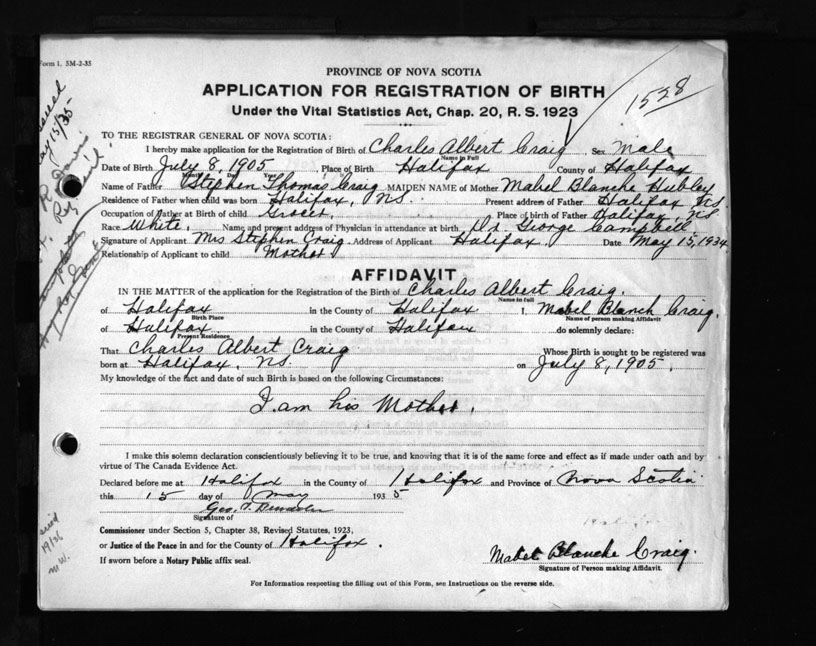 Form 1. 5M-2-35
PROVINCE OF NOVA SCOTIA
APPLICATION FOR REGISTRATION OF BIRTH
Under the Vital Statistics Act, Chap. 20, R. S. 1923
1528
TO THE REGISTRAR GENERAL OF NOVA SCOTIA:
I hereby make application for the Registration of Birth of Charles Albert Craig Sex Male
Name in Full
Date of Birth July 8, 1905 Place of Birth Halifax County of Halifax
Month Day Year
Name of Father Stephen Thomas Craig MAIDEN NAME of Mother Mabel Blanche Hubley
Residence of Father when child was born Halifax, N.S. Present address of Father Halifax N.S.
Occupation of Father at Birth of child Grocer. Place of birth of Father Halifax, N.S.
Race White. Name and present address of Physician in attendance at birth Dr. George Campbell.
Signature of Applicant Mrs Stephen Craig. Address of Applicant Halifax Date May 15, 1934
Relationship of Applicant to child Mother
AFFIDAVIT
IN THE MATTER of the application for the Registration of the Birth of Charles Albert Craig.
Name in full
of Halifax in the County of Halifax I, Mabel Blanch Craig,
Birth Place Name of person making Affidavit
of Halifax in the County of Halifax do solemnly declare:
Present Residence
That Charles Albert Craig Whose Birth is sought to be registered was
born at Halifax, N.S. on July 8, 1905.
My knowledge of the fact and date of such Birth is based on the following Circumstances:
I am his Mother.
I make this solemn declaration conscientiously believing it to be true, and knowing that it is of the same force and effect as if made under oath and by
virtue of The Canada Evidence Act.
Declared before me at Halifax in the County of Halifax and Province of Nova Scotia
this 15 day of May 1935
Geo. T.
Signature of
Commissioner under Section 5, Chapter 38, Revised Statutes, 1923,
or Justice of the Peace in and for the County of Halifax.
If sworn before a Notary Public affix seal.
Mabel Blanche Craig.
Signature of Person making Affidavit.
For Information respecting the filling out of this Form, see Instructions on the reverse side.